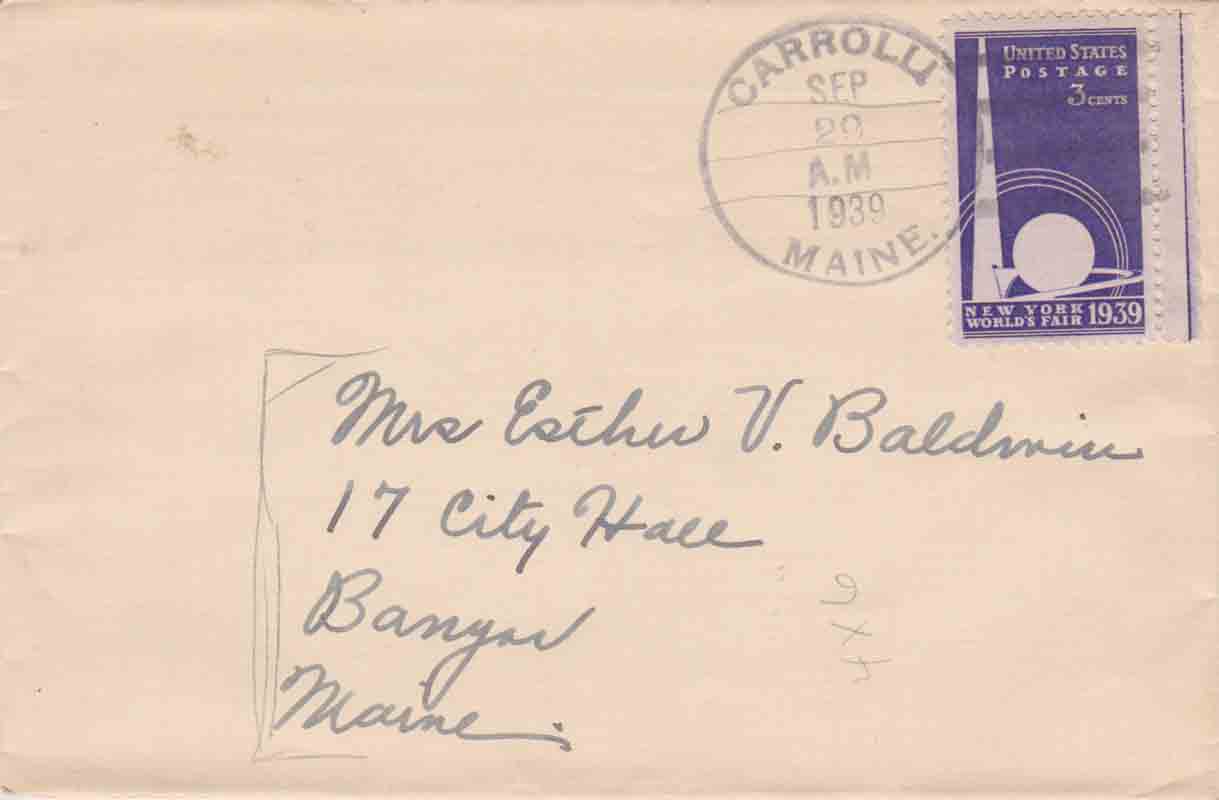 CARROLL
SEP
A.M
1939
MAINE.
UNITED STATES
POSTAGE
3 CENTS
NEW YORK
WORLD'S FAIR 1939
Mrs Esther V. Baldwin
17 City Hall
Bangor
Maine.